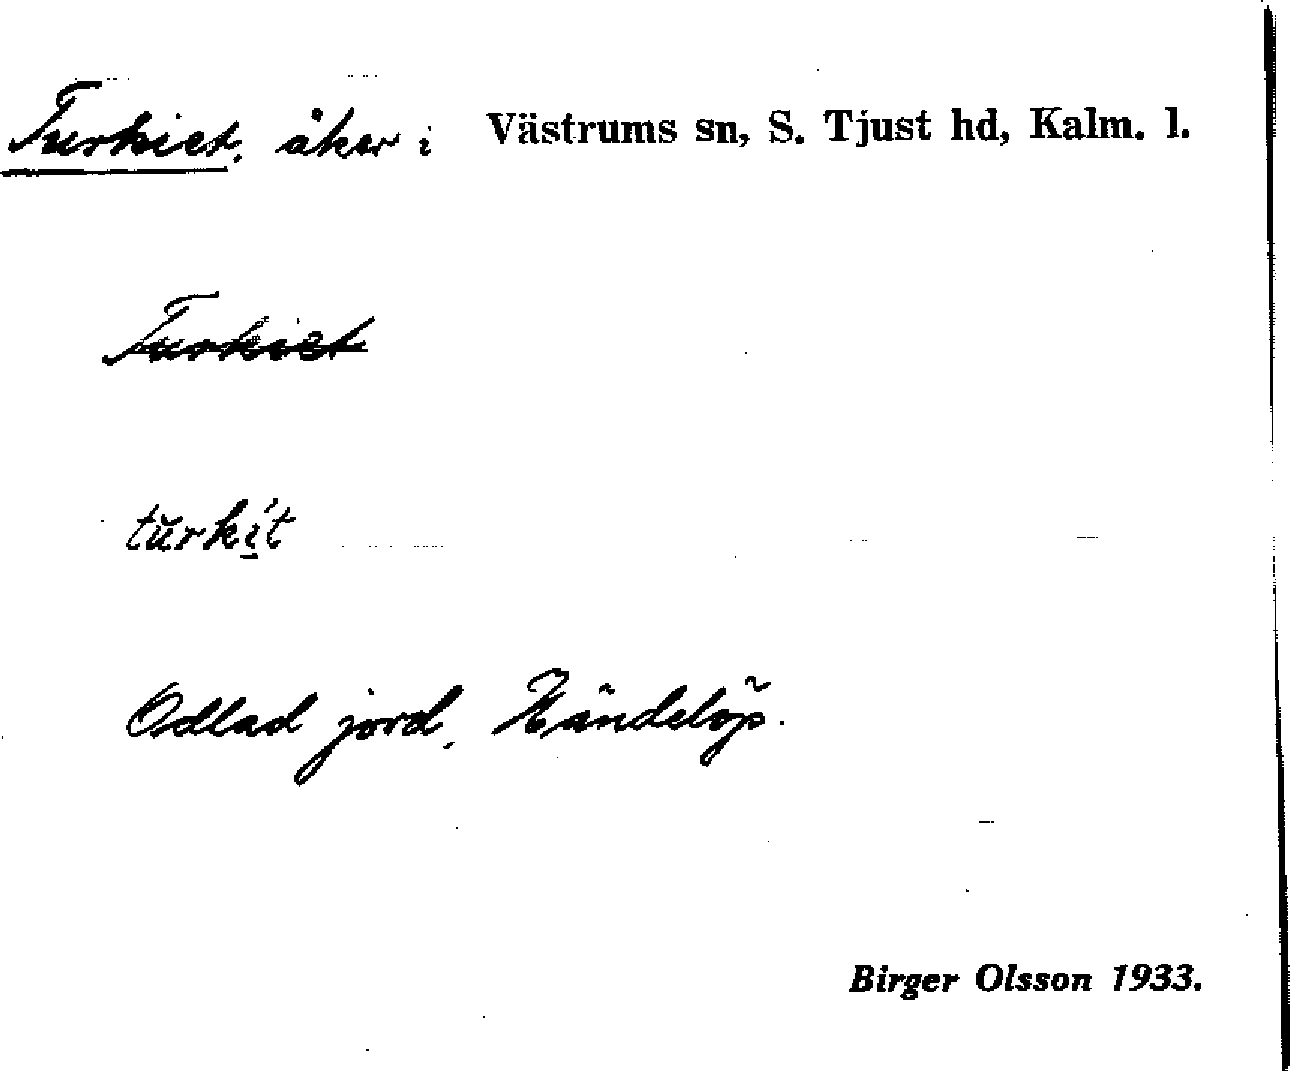 Turkiet, åker i Västrums sn, S. Tjust hd, Kalm. l.
Turkiet
turkí̱t
Odlad jord, Händelöp.
Birger Olsson 1933.